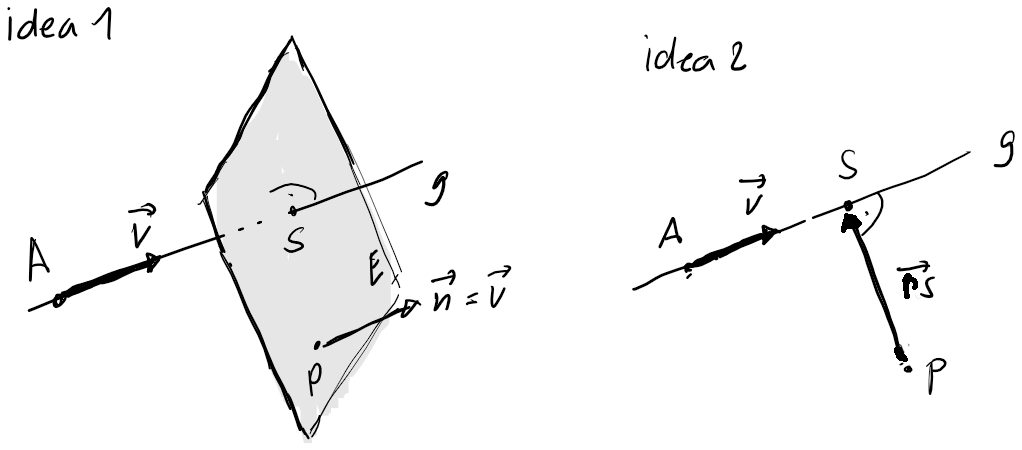 idea 1
A
v⃗
S
g
E
n⃗ = v⃗
P
idea 2
A
v⃗
S
g
PS⃗
P